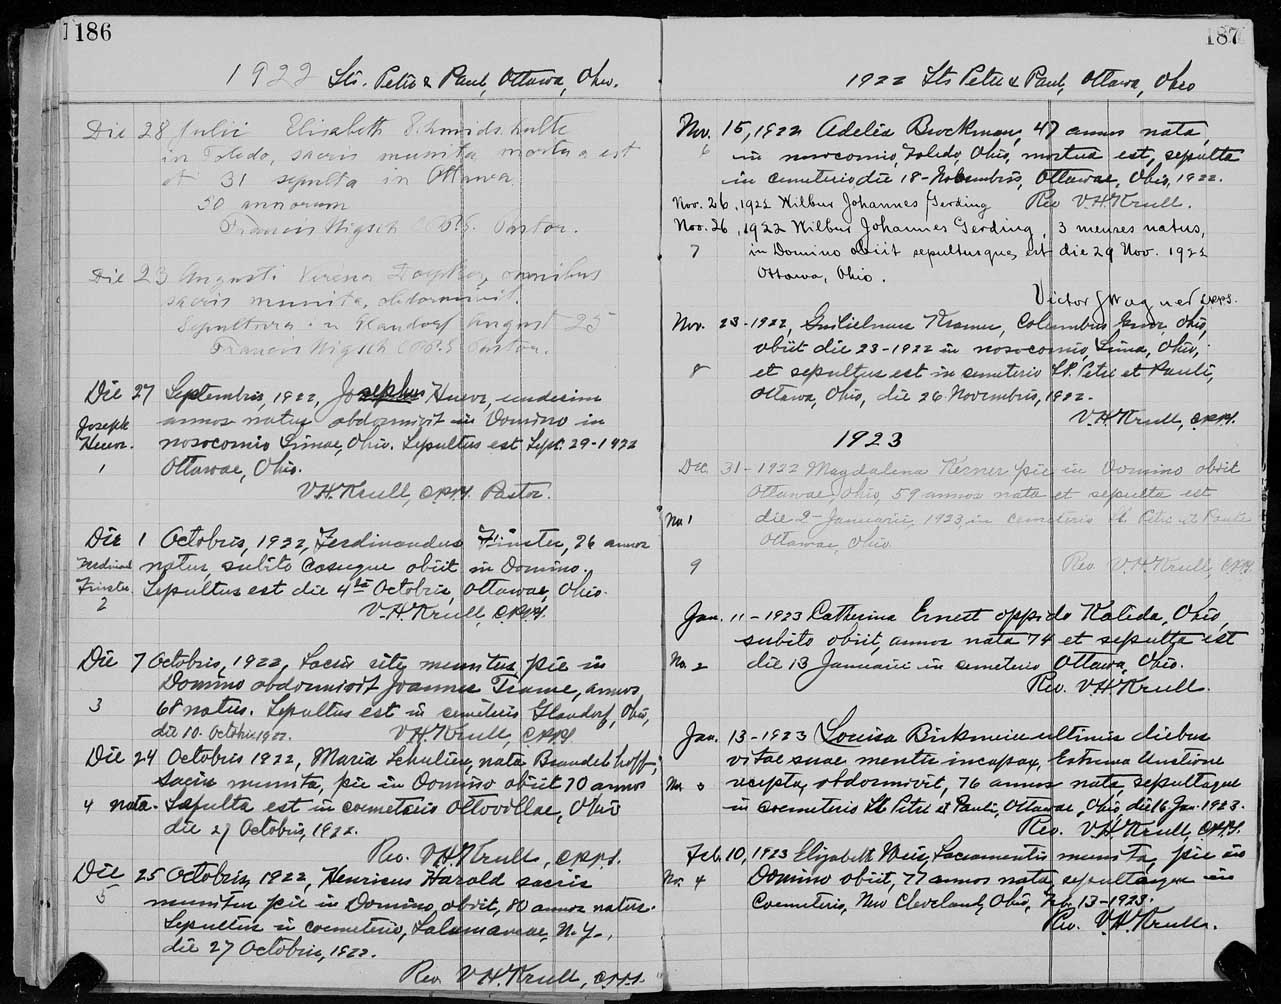 186
1922 Sts. Peter & Paul, Ottawa, Ohio.
Die 28 Julii Elisabeth Schmidshulte
in Toledo, sacris munita mortua est
et 31 sepulta in Ottawa
50 annorum
Francis Nigsch C.PP.S. Pastor.
Die 23 Augusti Verena omnibus
sacris munita, obdormivit.
Sepultura in Glandorf August 25
Francis Nigsch C.PP.S. Pastor.
Die 27 Septembris, 1922, Josephus Huevr, undecim
Joseph annos natus obdormivit in Domino in
nosocomio Limae, Ohio. Sepultus est Sept. 29-1922
1 Ottawae, Ohio.
V.H. Krull, C.PP.S. Pastor.
Die 1 Octobris, 1922, Ferdinandus Finster, 26 annos
Ferdinand natus, subito casuque obiit in Domino.
Finster Sepultus est die 4ta Octobris, Ottawae, Ohio.
2 V.H. Krull, C.PP.S.
Die 7 Octobris, 1922, Sacris rite munitus, pie in
Domino obdormivit Joannes Trame, annos
3 68 natus. Sepultus est in cemeterio Glandorf, Ohio,
die 10. Octobris 1922. V.H. Krull, C.PP.S.
Die 24 Octobris 1922, Maria Schulien, nata Brandehoff,
Sacris munita, pie in Domino obiit 70 annos
4 nata. Sepulta est in coemeterio Ottovillae, Ohio
die 27 Octobris, 1922.
Rev. V.H. Krull, C.PP.S.
Die 25 Octobris, 1922, Henricus Harold sacris
5 munitus pie in Domino, obiit, 80 annos natus.
Sepultus in coemeterio, Salamancae, N.Y.,
die 27 Octobris, 1922.
Rev. V.H. Krull, C.PP.S.
187
1922 Sts Peter & Paul, Ottawa, Ohio
Nov. 15, 1922 Adelia Brockman, 47 annos nata,
6 in nosocomio, Toledo, Ohio, mortua est, sepulta
in cemeterio die 18-Novembris, Ottawae, Ohio, 1922.
Nov. 26, 1922 Wilbur Johannes Gerding Rev. V.H. Krull.
Nov. 26, 1922 Wilbur Johannes Gerding, 3 menses natus,
7 in Domino obiit sepultusque est die 29 Nov. 1922
Ottawa, Ohio.
Victor J Wagner, C.PP.S.
Nov. 23-1922, Guilielmus Kramer, Columbus Grove, Ohio,
obiit die 23-1922 in nosocomio, Lima, Ohio,
8 et sepultus est in cemeterio St. Petri et Pauli,
Ottawa, Ohio, die 26 Novembris, 1922.
V.H. Krull, C.PP.S.
1923
Dec. 31-1922 Magdalena Kerner pie in Domino obiit
Ottawae, Ohio, 59 annos nata et sepulta est
No. 1 die 2-Januarii, 1923, in cemeterio St. Petri et Pauli
Ottawae, Ohio.
9 Rev. V.H. Krull, C.PP.S.
Jan. 11-1923 Catherina Ernest oppido Kalida, Ohio,
subito obiit, annos nata 74 et sepulta est
No. 2 die 13 Januarii in cemeterio Ottawa, Ohio.
Rev. V.H. Krull.
Jan. 13-1923 Louisa ultimis diebus
vitae suae mentis incapax, Extrema Unctione
No. 3 recepta, obdormivit, 76 annos nata, sepultaque
in coemeterio St Petri et Pauli, Ottawae, Ohio, die 16 Jan. 1923.
Rev. V.H. Krull, C.PP.S.
Feb. 10, 1923 Elizabeth Weis, Sacramentis munita, pie in
No. 4 Domino obiit, 77 annos nata, sepultaque in
Coemeterio, New Cleveland, Ohio, Feb. 13-1923.
Rev. V.H. Krull.